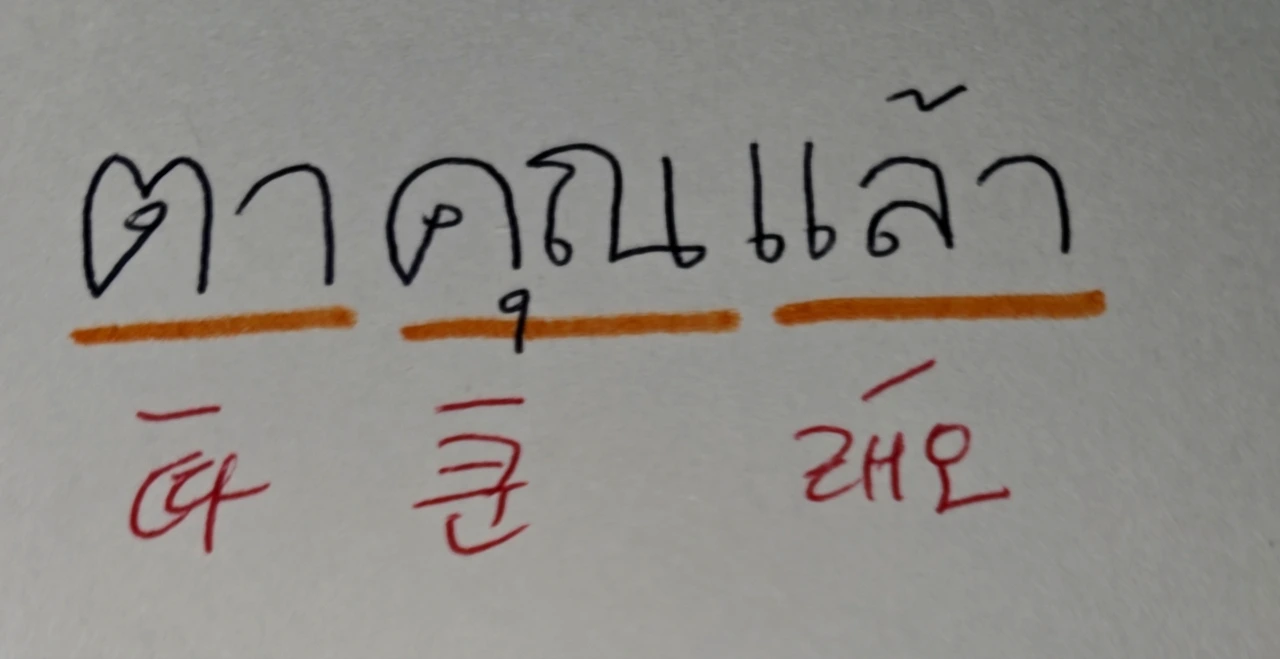 ตาคุณแล้า
따 쿤 래오